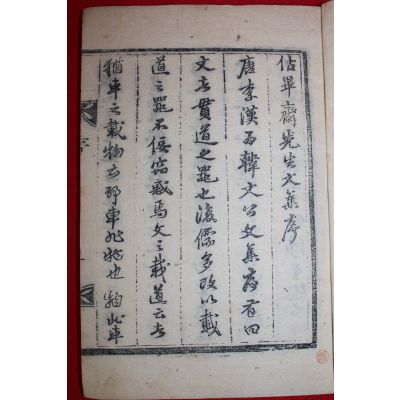 佔畢齋先生文集序
唐李漢爲韓文公文集序首曰
文者貫道之器也後儒多改以載
道之器不侫竊惑焉文之載道云者
猶車之載物云耶車非也此車